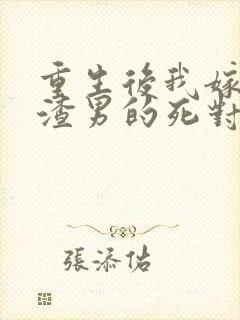 重生後我嫁
渣男的死對
張添佑